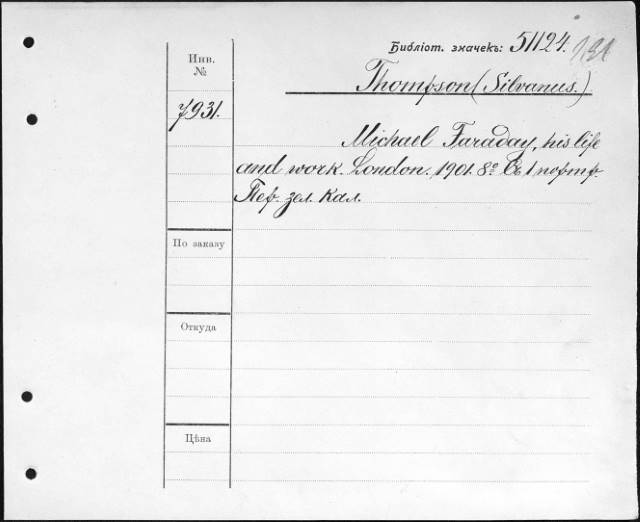 Библіот. значекъ: 51124.
Инв.
№
Thompson (Silvanus.)
7931.
Michael Faraday, his life
and work. London. 1901. 8º Съ 1 портр.
Пер. зел. кал.
По заказу
Откуда
Цѣна